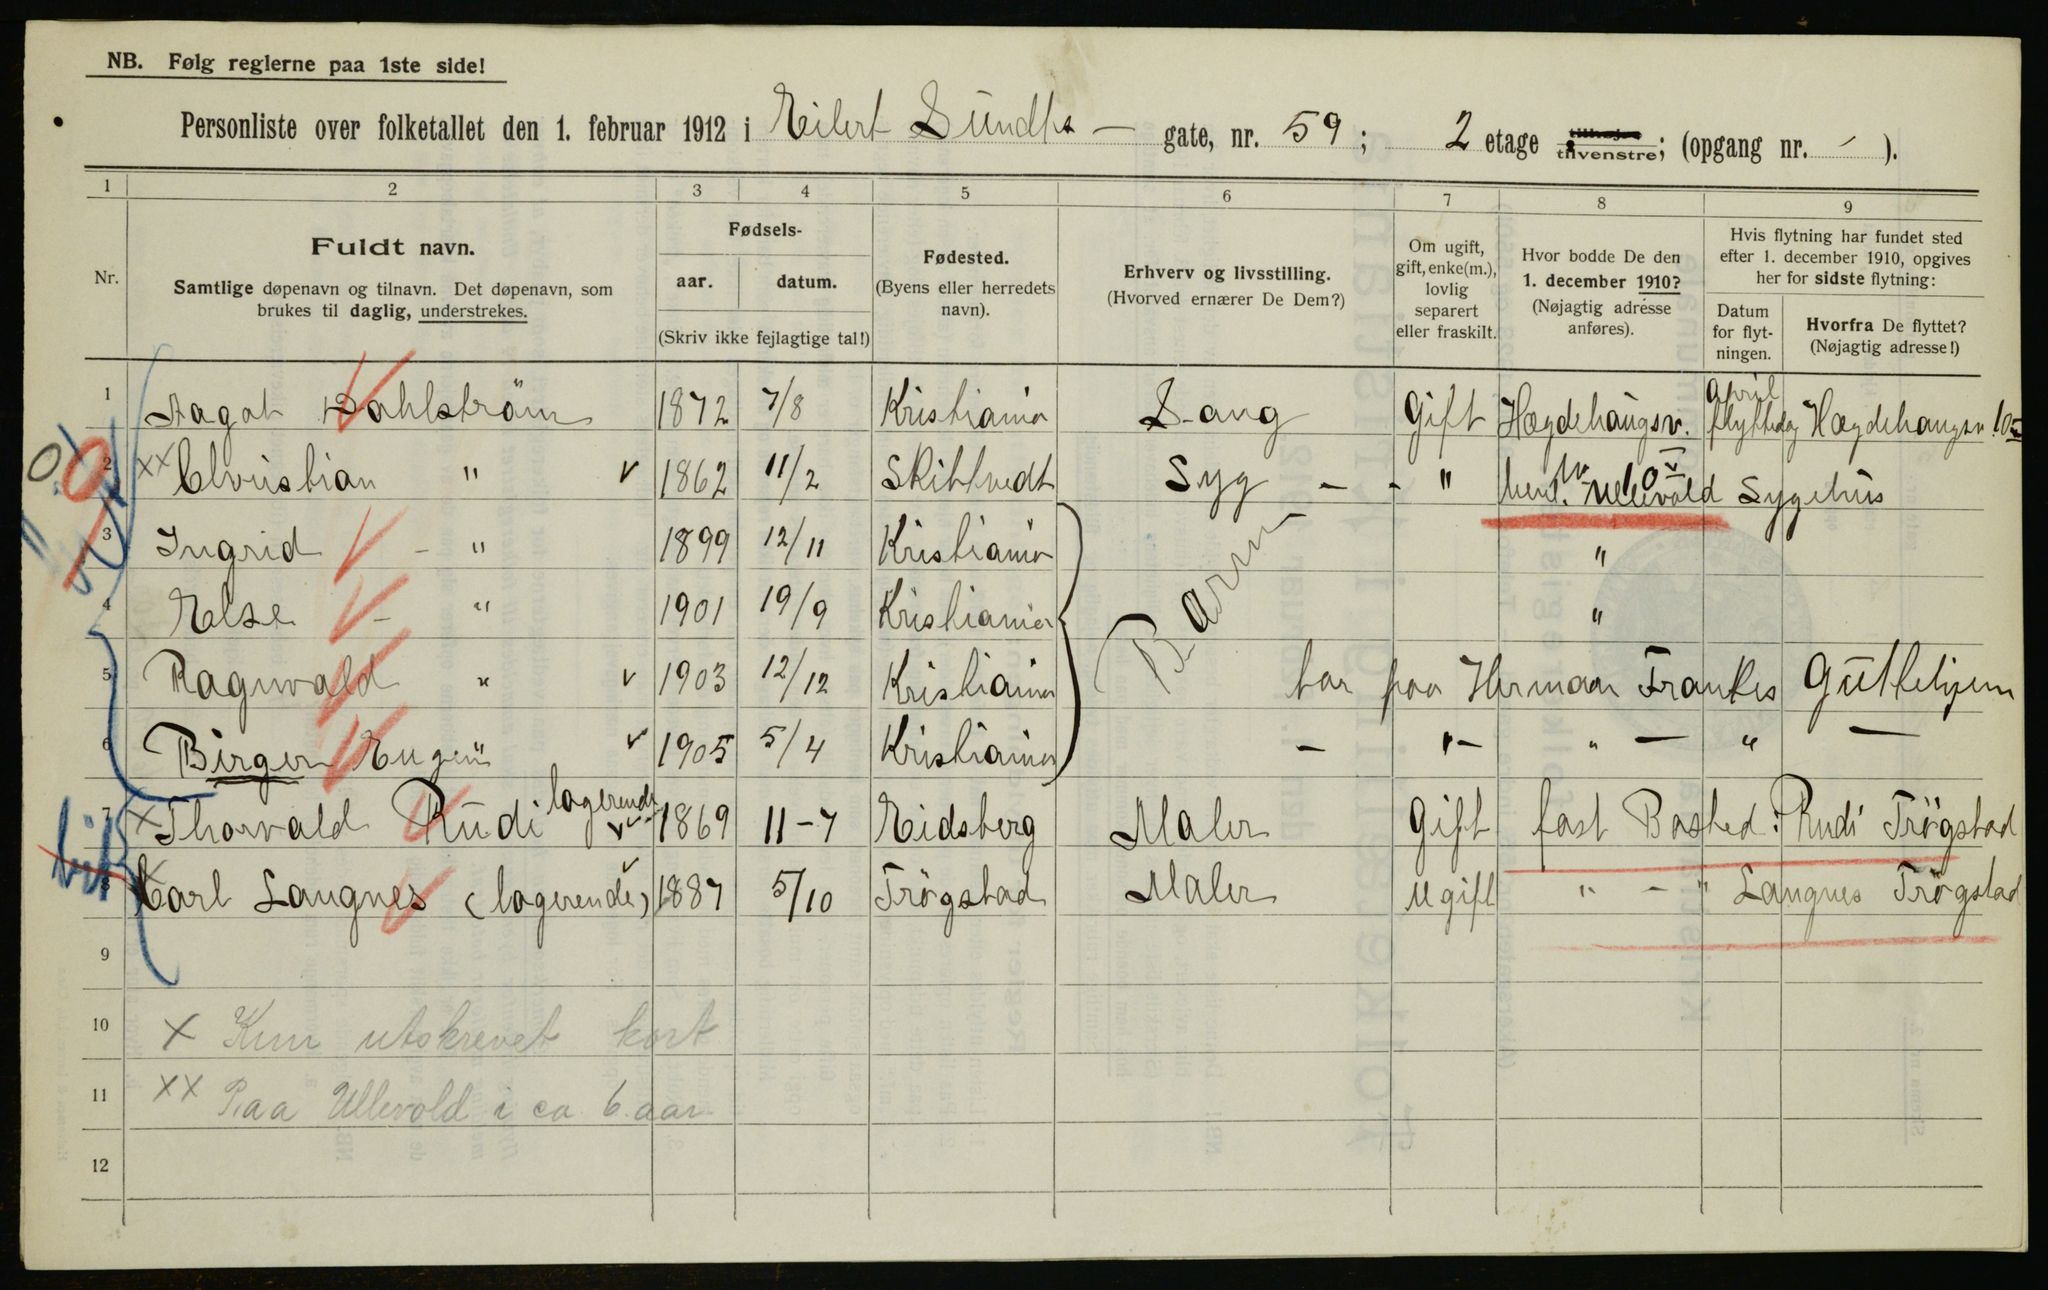 NB. Følg reglerne paa 1ste side!
Personliste over folketallet den 1. februar 1912 i Eilert Sündts — gate, nr. 59; 2 etage tilhøjre tilvenstre; (opgang nr. - ).
1 2 3 4 5 6 7 8 9
Nr.
Fuldt navn.
Samtlige døpenavn og tilnavn. Det døpenavn, som
brukes til daglig, understrekes.
Fødsels-
aar. datum.
(Skriv ikke fejlagtige tal!)
Fødested.
(Byens eller herredets
navn).
Erhverv og livsstilling.
(Hvorved ernærer De Dem?)
Om ugift,
gift, enke(m.),
lovlig
separert
eller fraskilt.
Hvor bodde De den
1. december 1910?
(Nøjagtig adresse
anføres).
Hvis flytning har fundet sted
efter 1. december 1910, opgives
her for sidste flytning:
Datum
for flyt-
ningen.
Hvorfra De flyttet?
(Nøjagtig adresse!)
1 Aagot Dahlström 1872 7/8 Kristiania Sang Gift Hægdehaugsv. april flyttedag Hægdehaugsv 10
2 xx Christian " 1862 11/2 Skibtvedt Syg - - " Ullevold Sygehüs
3 Ingrid - " 1899 12/11 Kristiania Barn "
4 Else - " 1901 19/9 Kristiania "
5 Ragnvald " 1903 12/12 Kristiania bor paa Herman Frankes Güttehjem
6 Birger Eugen 1905 5/4 Kristiania - " - " — " —
7 x Thorvald Rüdi logerende 1869 11-7 Eidsberg Maler Gift fast Bosted: Rudi Trögstad
8 x Carl Langnes (logerende) 1887 5/10 Trögstad Maler Ugift " - " Langnes Trögstad
9
10 x Kun utskrevet kort
11 xx Paa Ullevold i ca 6 aar
12